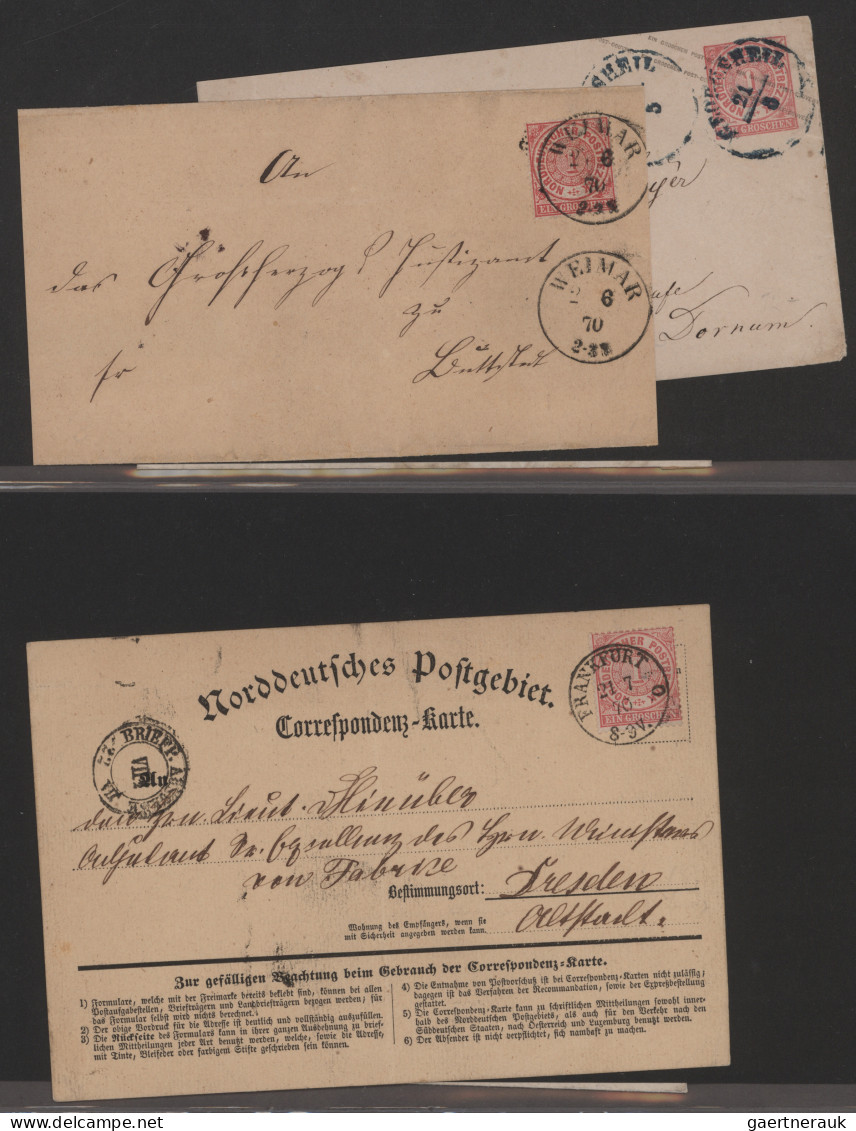 EIN GROSCHEN
21/8
5
Dornum.
An
das Großherzogl Justizamt
zu
Buttstedt
fr
WEIMAR
6
70
EIN GROSCHEN
WEIMAR
2 6
70
Norddeutsches Postgebiet.
Correspondenz-Karte.
FRANKFURT
21 7
70
8-9V.
EIN GROSCHEN
BRIEFP.
VIII
An
den Hrn. Lieut.
Adjutant Sr. Excellenz des Hrn.
von Fabrice
Bestimmungsort: Dresden
Altstadt.
Wohnung des Empfängers, wenn sie
mit Sicherheit angegeben werden kann.
Zur gefälligen Beachtung beim Gebrauch der Correspondenz-Karte.
1) Formulare, welche mit der Freimarke bereits beklebt sind, können bei allen
Postaufgabestellen, Briefträgern und Landbriefträgern bezogen werden; für
das Formular selbst wird nichts berechnet.
2) Der obige Vordruck für die Adresse ist deutlich und vollständig auszufüllen.
3) Die Rückseite des Formulars kann in ihrer ganzen Ausdehnung zu brief-
lichen Mittheilungen jeder Art benutzt werden, welche, sowie die Adresse,
mit Tinte, Bleifeder oder farbigem Stifte geschrieben sein können.
4) Die Entnahme von Postvorschuß ist bei Correspondenz-Karten nicht zulässig;
dagegen ist das Verfahren der Recommandation, sowie der Expreßbestellung
gestattet.
5) Die Correspondenz-Karte kann zu schriftlichen Mittheilungen sowohl inner-
halb des Norddeutschen Postgebiets, als auch für den Verkehr nach den
Süddeutschen Staaten, nach Oesterreich und Luxemburg benutzt werden.
6) Der Absender ist nicht verpflichtet, sich namhaft zu machen.
gaertnerauk